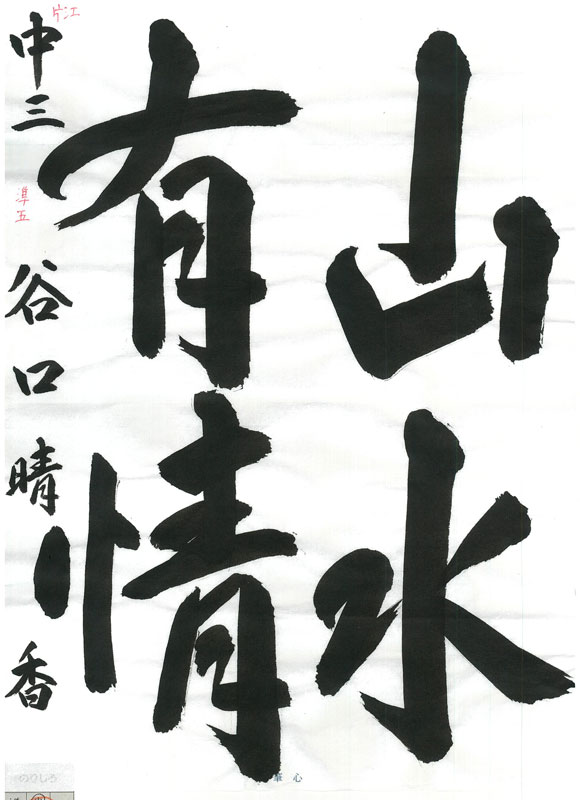 山水
有情
中三 谷口晴香
片江
準五
のりしろ